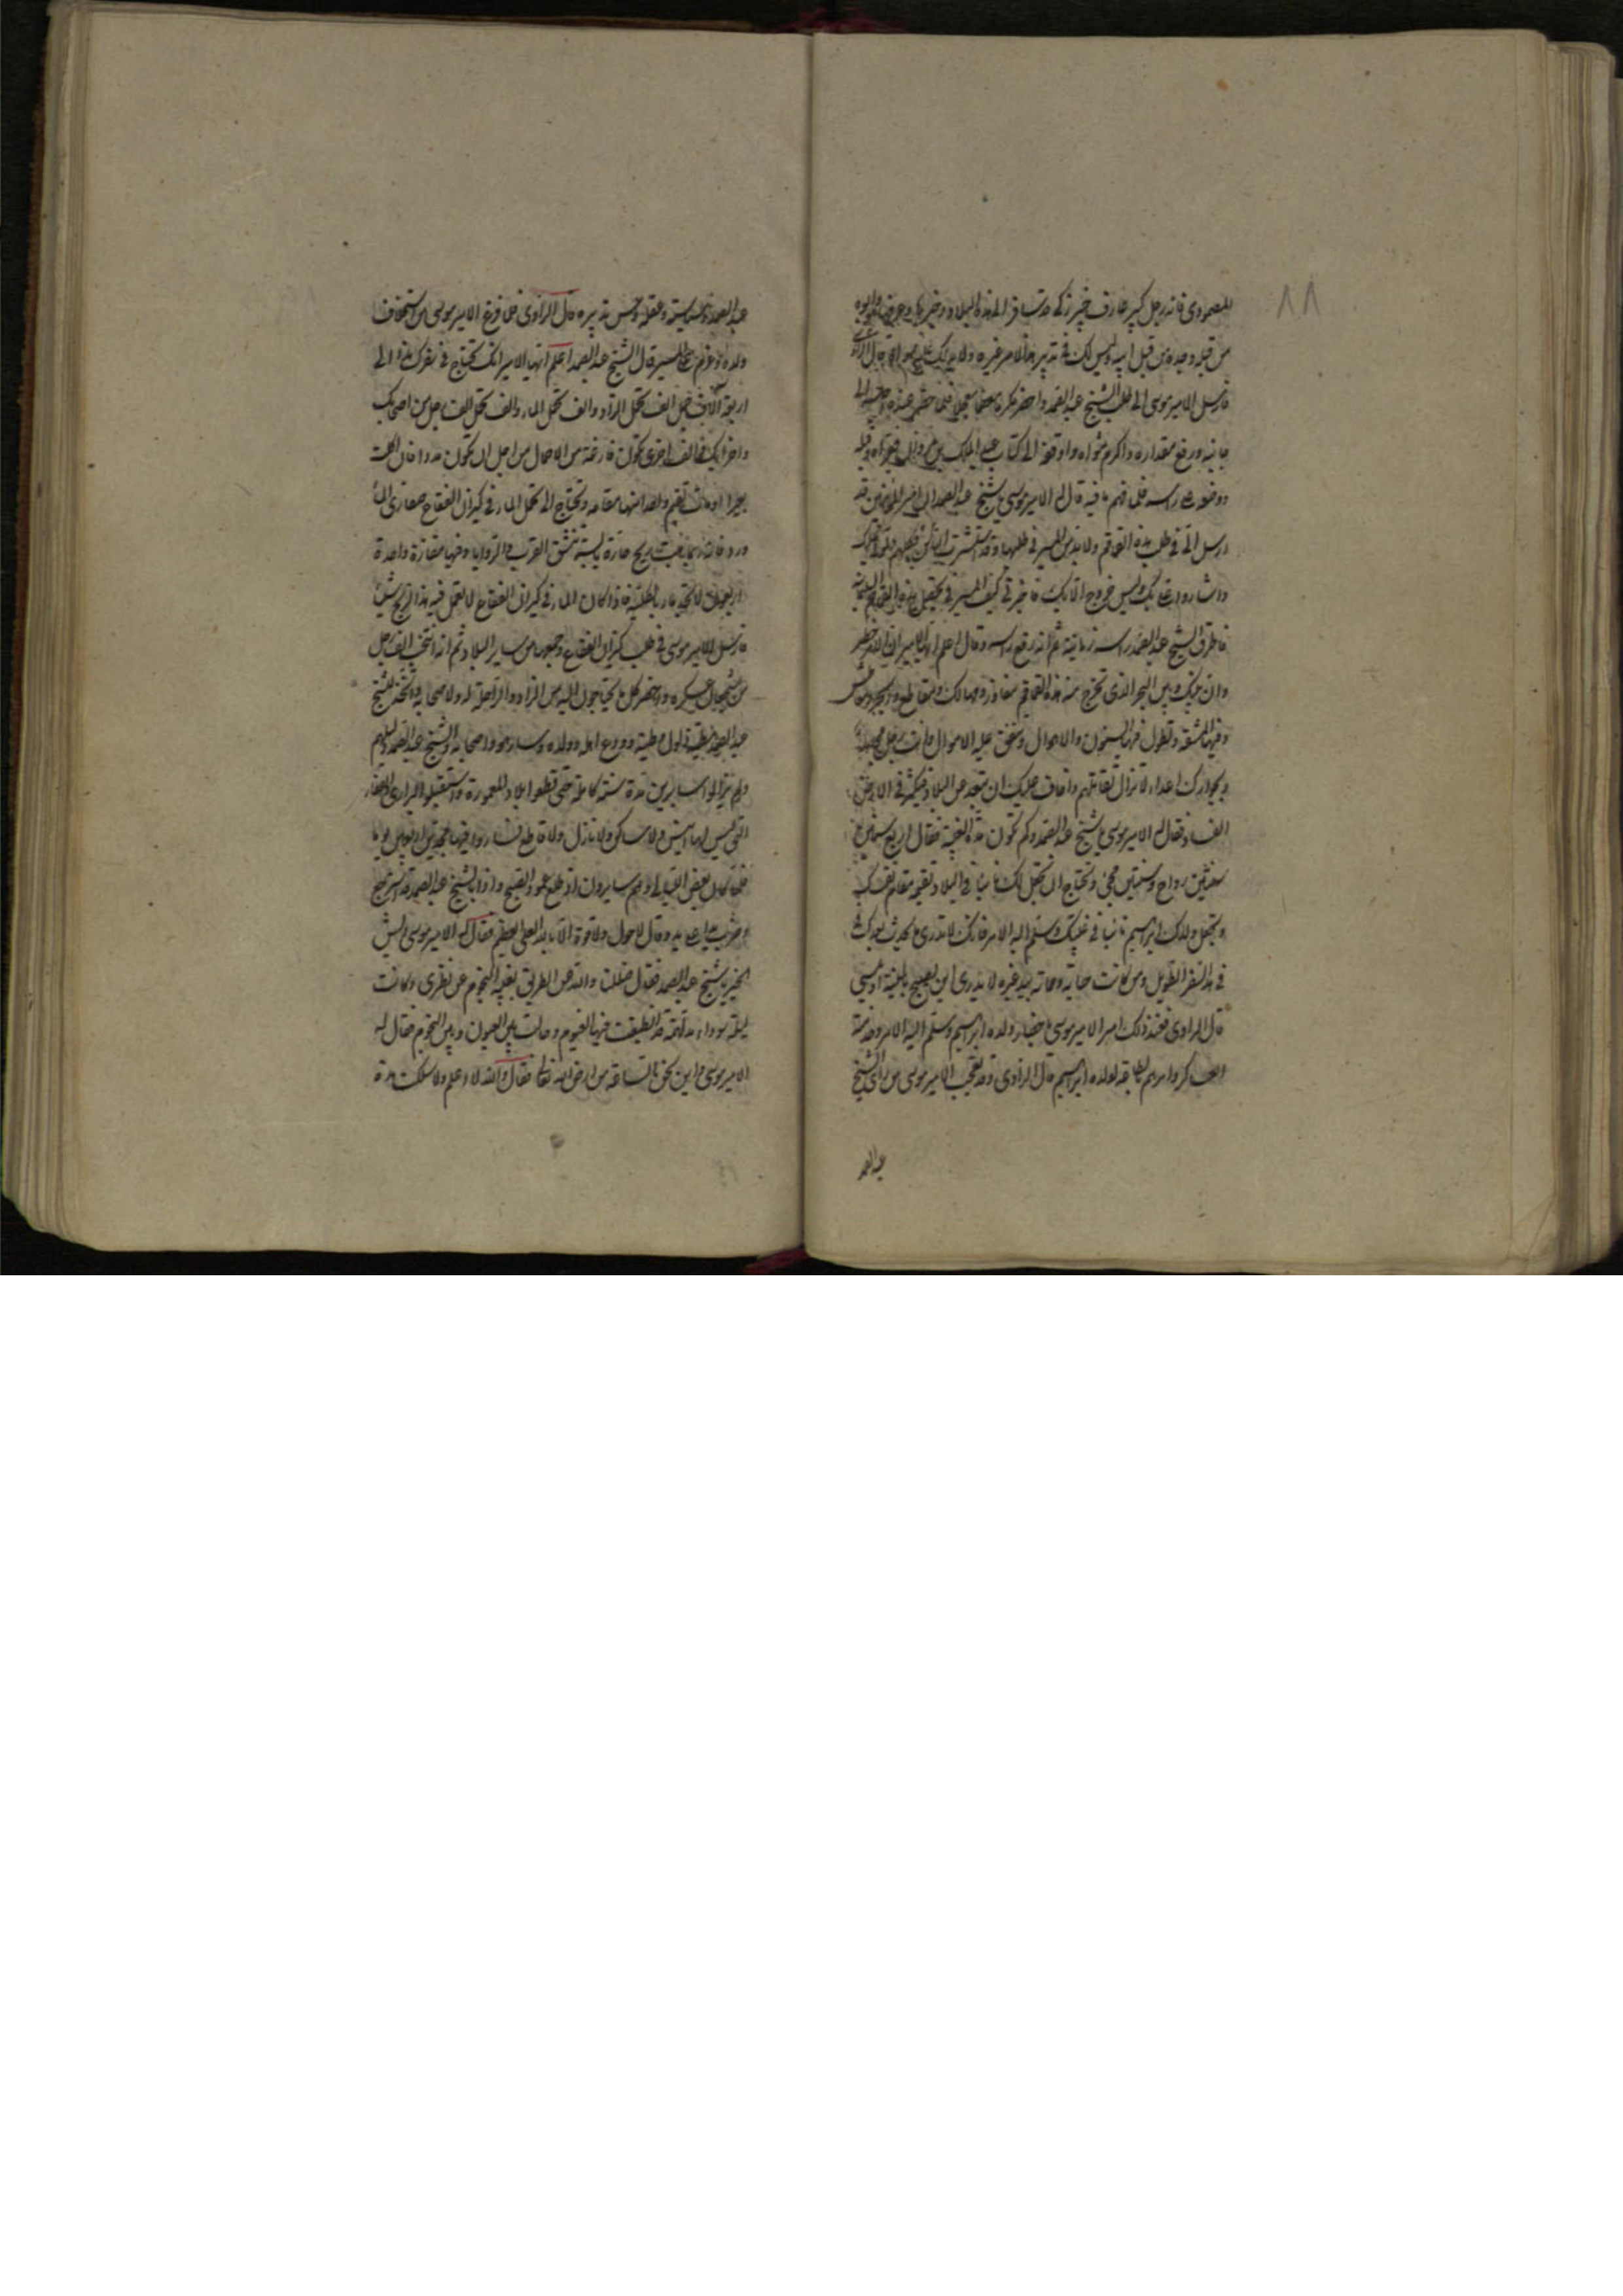 ٨٨
للصمودى فانه رجل كبير عارف خبير زكى قد سافر الى هذه البلاد وخبر بها وعرفها وابوه
من قبله وجده من قبل ابيه وليس لك فى تدبير هذا الامر غيره ولا يدلك عليه سواه قال الراوى
فارسل الامير موسى الى طلب الشيخ عبد الصمد واحضره مكرما معظما مبجلا فلما حضر عنده اجلسه الى
جانبه ورفع مقداره واكرم مثواه واوقفه الى كتاب عبد الملك بن مروان فقراه وقبله
ووضعه على راسه فلما فهم ما فيه قال له الامير موسى يا شيخ عبد الصمد ان امير المؤمنين قد
ارسل الى فى طلب هذه القماقم ولا بد من المسير فى طلبها وقد استشرت الناس
واشاروا عليك وليس خروج الا بك فاخبرنى كيف المسير فى تحصيل هذه القماقم السليمانية
فاطرق الشيخ عبد الصمد راسه زمانية ثم انه رفع راسه وقال اعلم ايها الامير ان
وان بينك وبين البحر الذى تخرج منه هذه القماقم مفاوز ومهالك ومقاطع
وفيها المشقة وتطول فيها السنون والاهوال وتنفق عليه الاموال وانت رجل
ويجاورك اعداء لا تزال تقاتلهم واخاف عليك ان تبعد عن البلاد فيكثر فى الارض
الفساد فقال له الامير موسى يا شيخ عبد الصمد وكم تكون مدة الغيبة فقال اربع سنين
سنتين رواح وسنتين مجى وتحتاج ان تجعل لك نايبا فى البلاد تقيمه مقام نفسك
وتجعل ولدك ابراهيم نايبا فى غيبتك وسلم اليه الامر فانك لا تدرى ما يحدث بعدك
فى هذا السفر الطويل ومن كانت حياته ومماته بيد غيره لا يدرى اين يصبح بالمنية او يمسى
قال الراوى فعند ذلك امر الامير موسى باحضار ولده ابراهيم وسلم اليه الامر وقدمه
العساكر وامرهم بالطاعة لولده ابراهيم قال الراوى وقد تعجب الامير موسى من راى الشيخ
عبد الصمد
عبد الصمد وسياسته وعقله وحسن تدبيره قال الراوى فلما فرغ الامير موسى من استخلاف
ولده وعزم على المسير قال الشيخ عبد الصمد اعلم ايها الامير انك تحتاج فى سفرك هذا الى
اربعة آلاف جمل الف تحمل الزاد والف تحمل الماء والف تحمل الف رجل من اصحابك
والف اخرى تكون فارغة من الاحمال من اجل ان تكون مددا فان
بعيرا او مات تقيم واحدا منها مقامه وتحتاج الى تحمل الماء فى كيزان الفقاع صغارى
فانه ربما هبت ريح حارة يابسة تنشق القرب والروايا وفيها مفازة واحدة
اربعون لا تجد ماء بالكلية فاذا كان الماء فى كيزان الفقاع لا يعمل فيه هذا الريح شئ
فارسل الامير موسى فى طلب كيزان الفقاع وجمعها من ساير البلاد ثم انه انتخب الف رجل
من شجعان عسكره واحضر كل ما يحتاجون اليه من الزاد والراحلة له ولاصحابه واتخذ للشيخ
عبد الصمد مطية وودع اهله وولده وسار هو واصحابه والشيخ عبد الصمد
ولم يزالوا سايرين مدة سنة كاملة حتى قطعوا بلاد المعمورة واستقبلوا البرارى القفار
التى ليس لها انيس ولا ساكن ولا نازل ولا قاطع فساروا فيها مجدين اربعين يوما
فلما كان بعض الليالى وهم سايرون اذ طلع عمود الصبح واذا بالشيخ عبد الصمد قد استرجع
وضرب يدا على يد وقال لا حول ولا قوة الا بالله العلى العظيم فقال له الامير موسى وليش
الخبر يا شيخ عبد الصمد فقال ضللنا والله عن الطريق بغيبة النجوم عن نظرى وكانت
ليلة سوداء مدلهمة قد انطبقت فيها الغيوم وحالت بين العيون وبين النجوم فقال له
الامير موسى واين نحن الساعة من ارض الله تعالى فقال والله لا اعلم ولا سلكت مدة